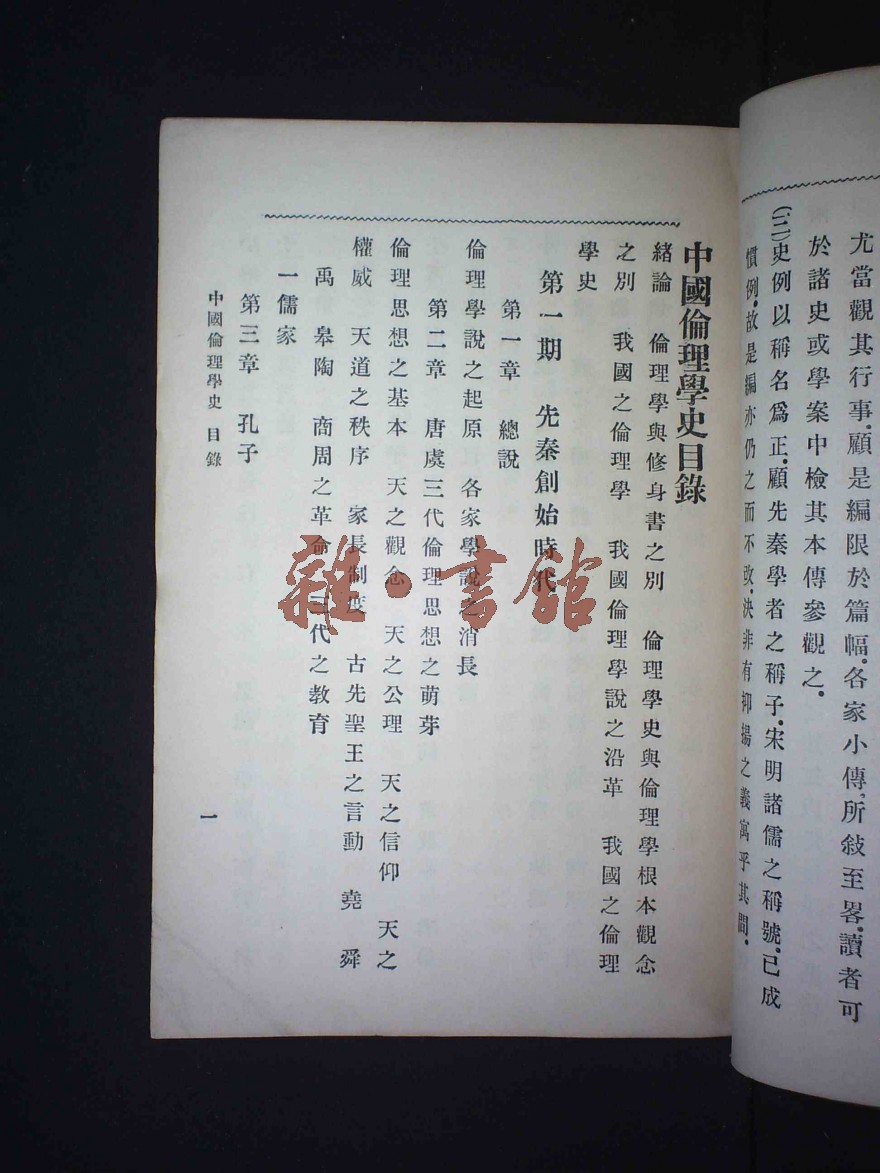 尤當觀其行事.顧是編限於篇幅.各家小傳.所敍至畧.讀者可
於諸史或學案中檢其本傳參觀之.
(三)史例以稱名爲正.顧先秦學者之稱子.宋明諸儒之稱號.已成
慣例.故是編亦仍之而不改.決非有抑揚之義寓乎其間.
中國倫理學史目錄
緒論 倫理學與修身書之別 倫理學史與倫理學根本觀念
之別 我國之倫理學 我國倫理學說之沿革 我國之倫理
學史
第一期 先秦創始時代
第一章 總說
倫理學說之起原 各家學說之消長
第二章 唐虞三代倫理思想之萌芽
倫理思想之基本 天之觀念 天之公理 天之信仰 天之
權威 天道之秩序 家長制度 古先聖王之言動 堯 舜
禹 皋陶 商周之革命 三代之教育
一儒家
第三章 孔子
中國倫理學史 目錄
一
雜·書館